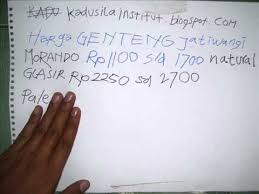 Kadusila institut. blogspot. com
Harga GENTENG jatiwangi
MORANDO Rp1100 s/d 1700 natural
GLASIR Rp2250 sd 2700
Pale